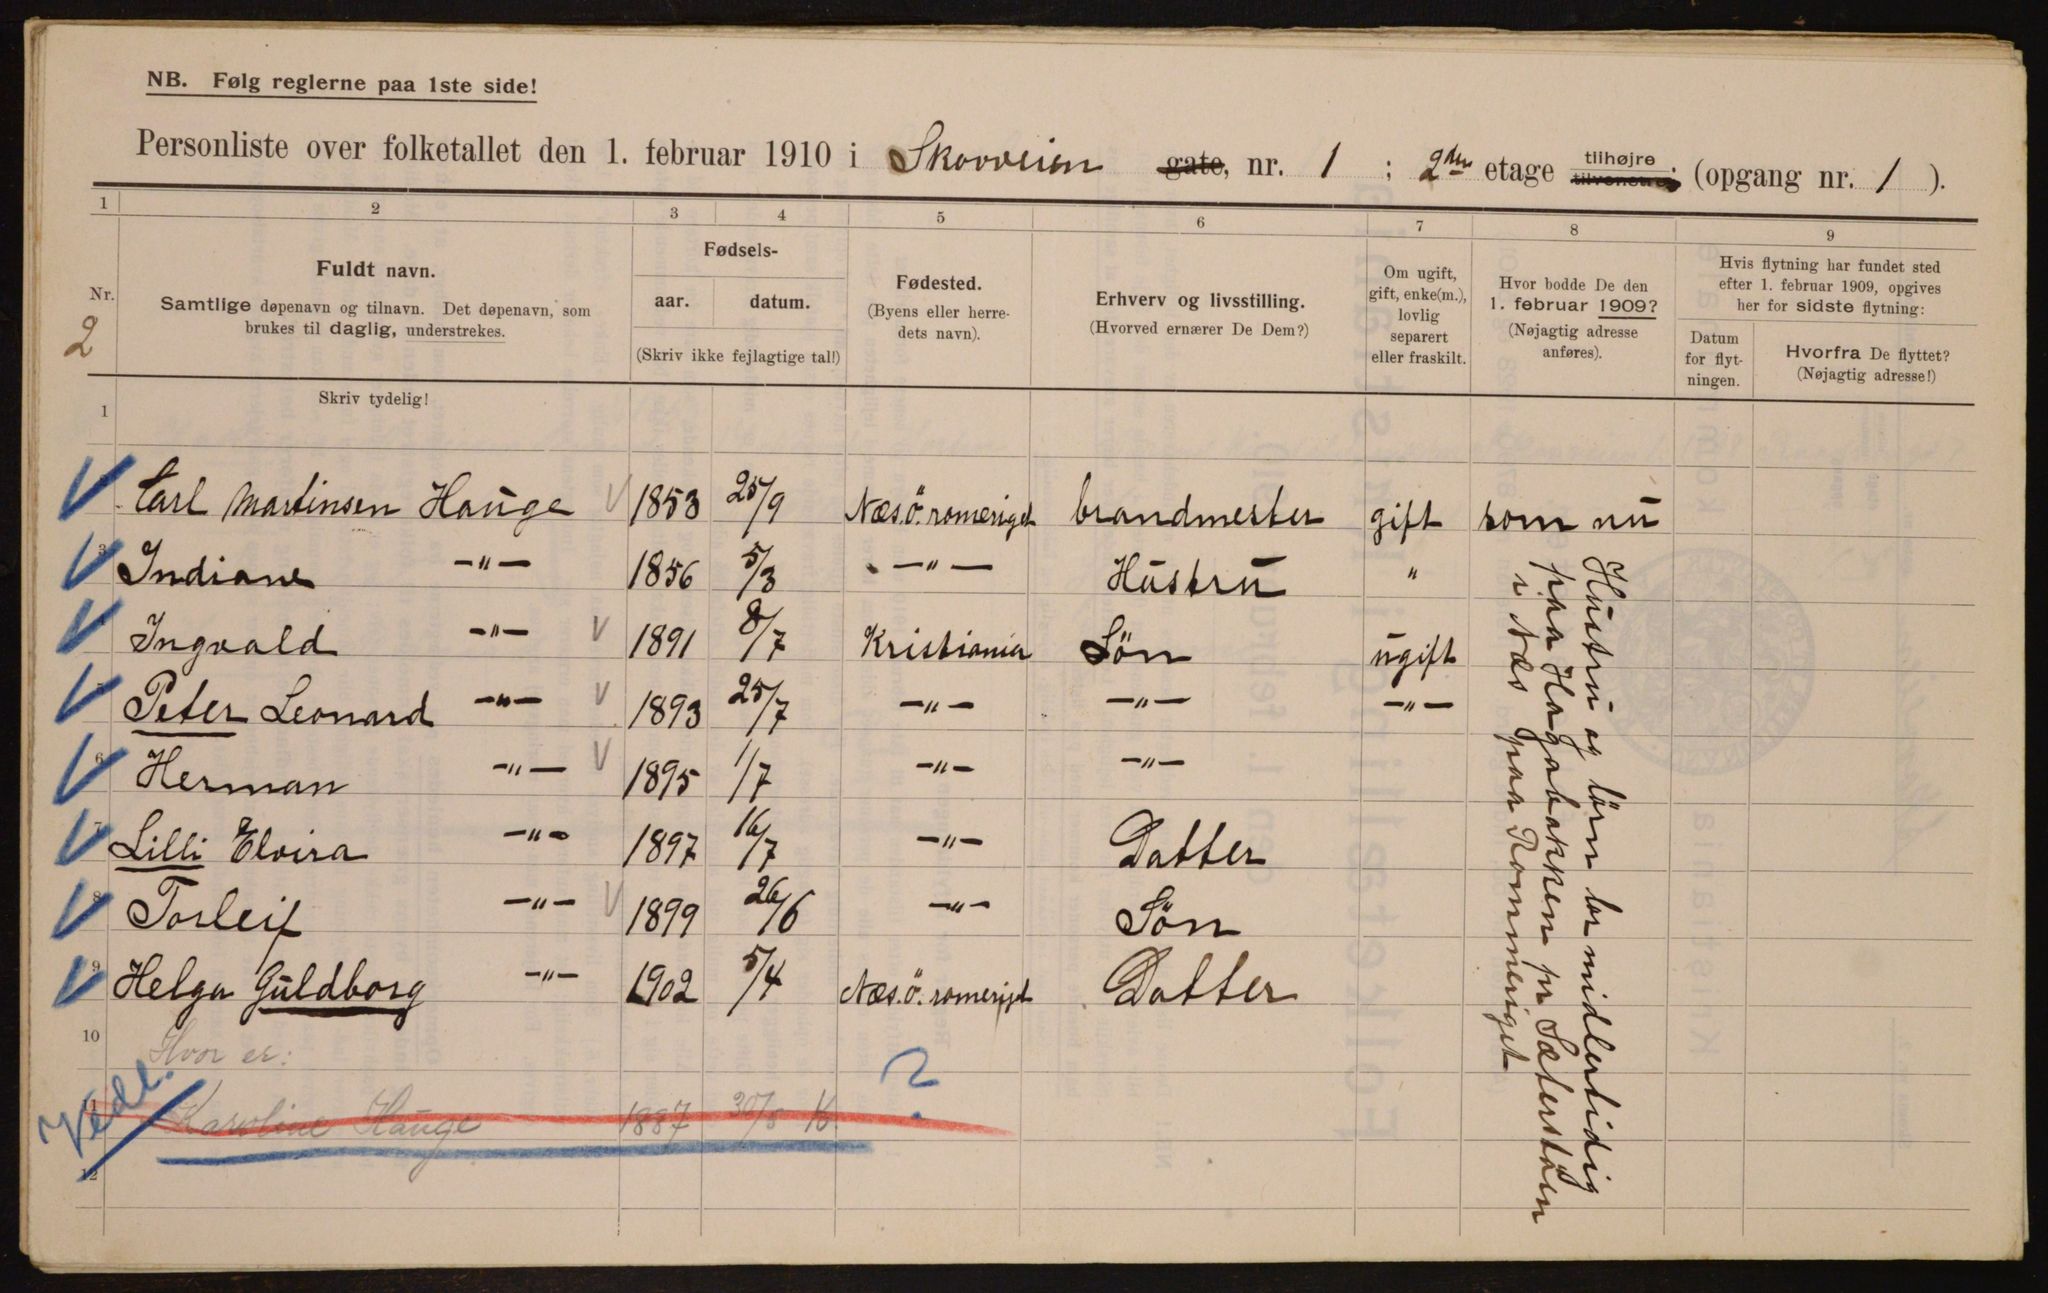 NB. Følg reglerne paa 1ste side!
Personliste over folketallet den 1. februar 1910 i Skovveien gate, nr. 1 ; 2den etage tilhøjre tilvenstre; (opgang nr. 1 ).
1 2 3 4 5 6 7 8 9
Nr. 2
Fuldt navn.
Samtlige døpenavn og tilnavn. Det døpenavn, som
brukes til daglig, understrekes.
Skriv tydelig!
Fødsels-
aar. datum.
(Skriv ikke fejlagtige tal!)
Fødested.
(Byens eller herre-
dets navn).
Erhverv og livsstilling.
(Hvorved ernærer De Dem?)
Om ugift,
gift, enke(m.),
lovlig
separert
eller fraskilt.
Hvor bodde De den
1. februar 1909?
(Nøjagtig adresse
anføres).
Hvis flytning har fundet sted
efter 1. februar 1909, opgives
her for sidste flytning:
Datum
for flyt-
ningen.
Hvorfra De flyttet?
(Nøjagtig adresse!)
1
Carl Martinsen Hauge 1853 25/9 Næs.Ö.romeriget brandmester gift som nu
3 Indiane -"- 1856 5/3 -"- Hustru "
Ingvald -"- 1891 8/7 Kristiania Sön ugift
5 Peter Leonard -"- 1893 25/7 -"- -"- -"-
6 Herman -"- 1895 1/7 -"- -"-
7 Lilli Elvira -"- 1897 16/7 -"- Datter
8 Torleif -"- 1899 26/6 -"- Sön
9 Helga Guldborg -"- 1902 5/4 Næs.ö.romeriget Datter
10 Hvor er:
11 Karoline Hauge 1887 30/8 ?
12
Vedl.
Hustru og börn bor midlertidig
paa Hagabakken pr Sæterstöen
i Næs paa Rommeriget